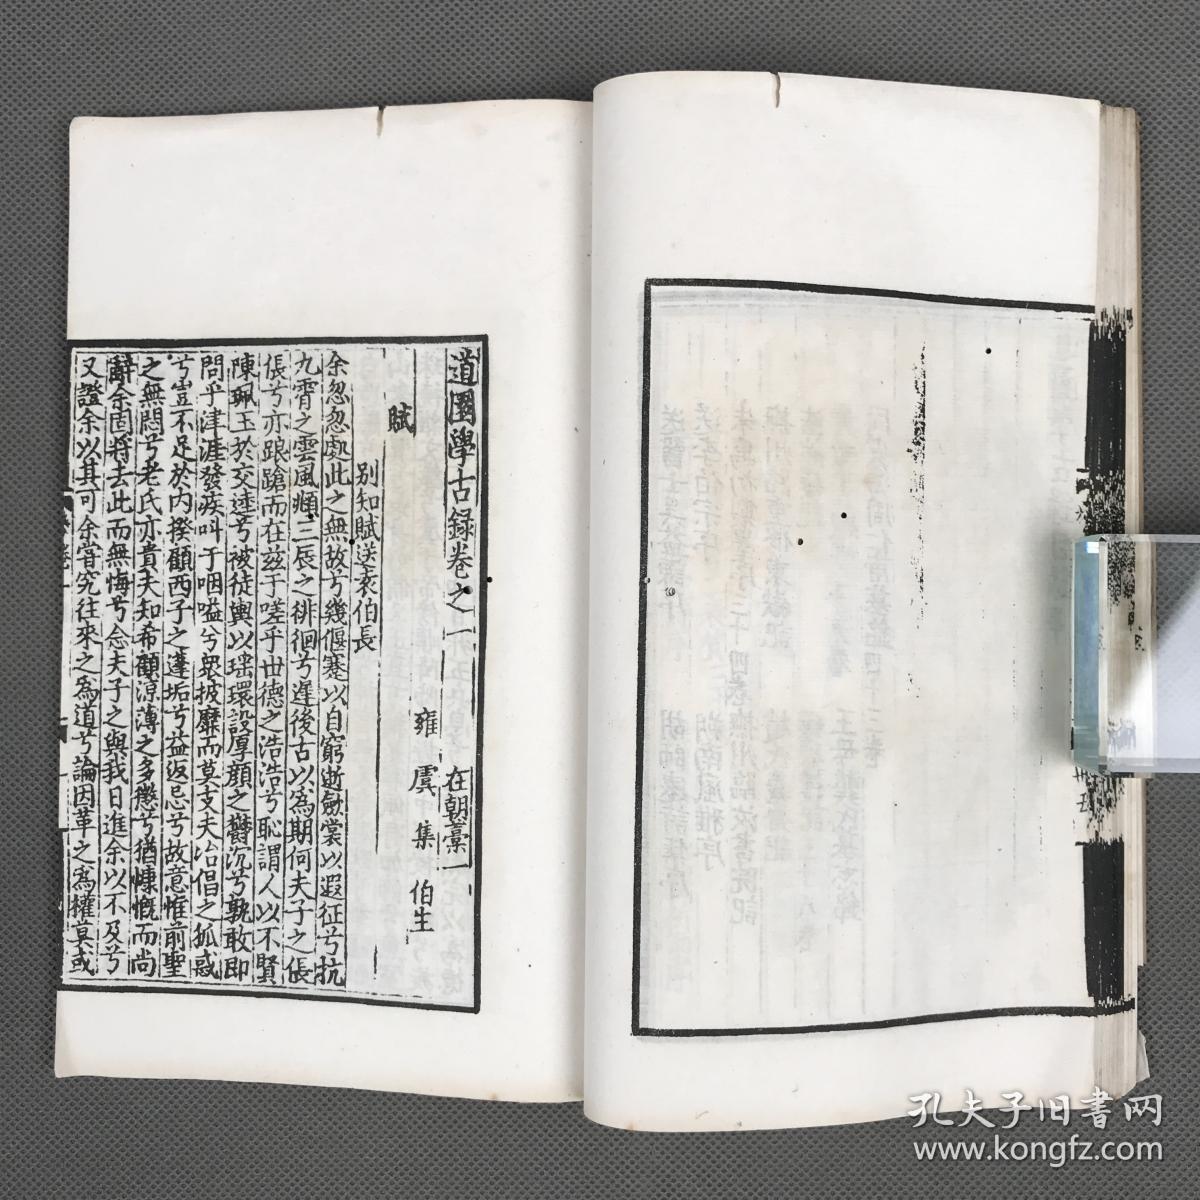 道園學古錄卷之一
在朝藁一
雍虞集伯生
賦
別知賦送袁伯長
余忽忽處此之無故兮幾偃蹇以自窮遡斂裳以遐征兮抗
九霄之雲風順三辰之徘徊兮遲後古以為期何夫子之倀
倀兮亦踉蹌而在茲于嗟乎世德之浩浩兮恥謂人以不賢
陳珮玉於交逵兮被徒輿以瑶環設厚顔之鬱沉兮孰敢即
問乎津涯發疾叫于咽嗌兮衆披靡而莫支夫冶倡之狐惑
兮豈不足於内揆顧西子之蓬垢兮益返忌兮故意惟前聖
之無悶兮老氏亦貴夫知希顧凉薄之多懲兮猶慷慨而尚
辭余固將去此而無悔兮念夫子之與我日進余以不及兮
又證余以其可余嘗究往來之為道兮論因革之為權莫或
孔夫子旧書网
www.kongfz.com